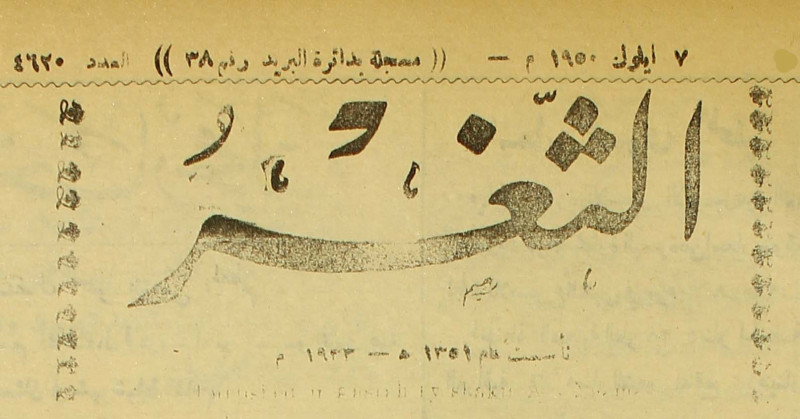 ٧ ايلول ١٩٥٠ م — (( مسجلة بدائرة البريد رقم ٣٨ )) العدد ٤٦٢٠
الثَّغْرُ
تأسست عام ١٣٥١ ه — ١٩٣٣ م